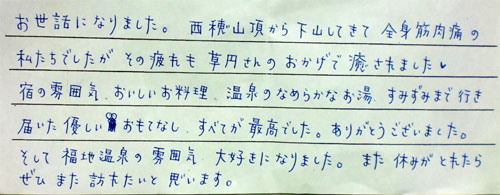 お世話になりました。 西穂山頂から下山してきて 全身筋肉痛の
私たちでしたが その疲れも 草円さんの おかげで 癒されました
宿の雰囲気、おいしいお料理、温泉のなめらかなお湯、すみずみまで行き
届いた優しい おもてなし、すべてが最高でした。ありがとうございました。
そして 福地温泉の 雰囲気 大好きになりました。 また 休みが とれたら
ぜひ また 訪れたいと 思います。